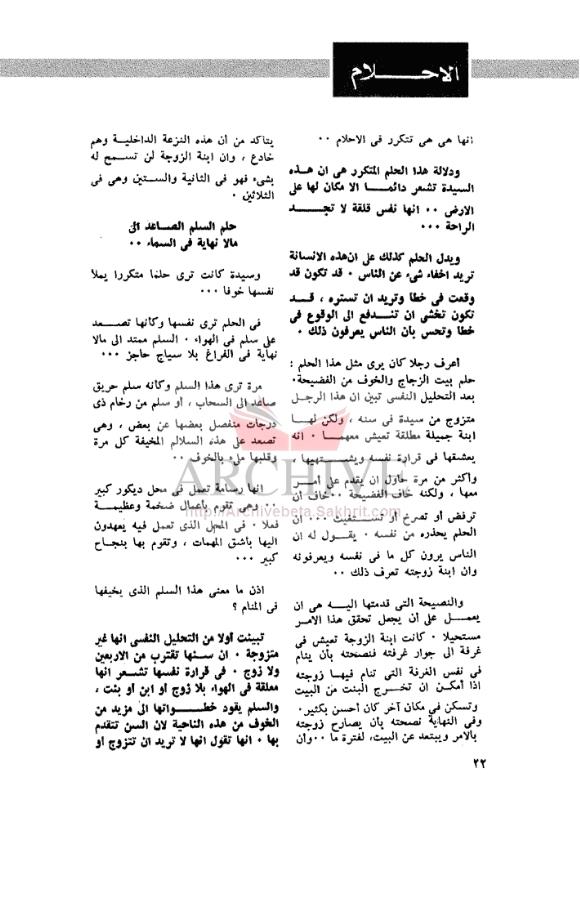 الاحلام
انها هى هى تتكرر فى الاحلام ٠٠
ودلالة هذا الحلم المتكرر هى ان هذه
السيدة تشعر دائما الا مكان لها على
الارض ٠٠ انها نفس قلقة لا تجد
الراحة ٠٠٠
ويدل الحلم كذلك على ان هذه الانسانة
تريد اخفاء شىء عن الناس ٠ قد تكون قد
وقعت فى خطا وتريد ان تستره ، قد
تكون تخشى ان تندفع الى الوقوع فى
خطا وتحس بان الناس يعرفون ذلك ٠
أعرف رجلا كان يرى مثل هذا الحلم :
حلم بيت الزجاج والخوف من الفضيحة٠
بعد التحليل النفسى تبين ان هذا الرجل
متزوج من سيدة فى سنه ، ولكن لها
ابنة جميلة مطلقة تعيش معهما ٠ انه
يعشقها فى قرارة نفسه ويشتهيها ،
وأكثر من مرة حاول ان يقدم على أمر
معها ، ولكنه خاف الفضيحة ٠٠خاف ان
ترفض أو تصرخ أو تستغيث ٠٠٠ ان
الحلم يحذره من نفسه ٠ يقول له ان
الناس يرون كل ما فى نفسه ويعرفونه
وان ابنة زوجته تعرف ذلك ٠٠
والنصيحة التى قدمتها اليه هى ان
يعمل على أن يجعل تحقق هذا الامر
مستحيلا ٠ كانت ابنة الزوجة تعيش فى
غرفة الى جوار غرفته فنصحته بأن ينام
فى نفس الغرفة التى تنام فيها زوجته
اذا أمكن ان تخرج البنت من البيت
وتسكن فى مكان آخر كان أحسن بكثير٠
وفى النهاية نصحته بأن يصارح زوجته
بالامر ويبتعد عن البيت، لفترة ما ٠٠وأن
يتاكد من أن هذه النزعة الداخلية وهم
خادع ، وان ابنة الزوجة لن تسمح له
بشىء فهو فى الثانية والستين وهى فى
الثلاثين ٠
حلم السلم الصاعد الى
مالا نهاية فى السماء ٠٠
وسيدة كانت ترى حلما متكررا يملأ
نفسها خوفا ٠٠٠
فى الحلم ترى نفسها وكأنها تصعد
على سلم فى الهواء ٠ السلم ممتد الى مالا
نهاية فى الفراغ بلا سياج حاجز ٠٠٠
مرة ترى هذا السلم وكأنه سلم حريق
صاعد الى السحاب ، أو سلم من رخام ذى
درجات منفصل بعضها عن بعض ، وهى
تصعد على هذه السلالم المخيفة كل مرة
وقلبها ملىء بالخوف ٠٠
انها رسامة تعمل فى محل ديكور كبير
٠٠ وهى تقوم بأعمال ضخمة وعظيمة
فعلا ٠ فى المحل الذى تعمل فيه يعهدون
اليها بأشق المهمات ، وتقوم بها بنجاح
كبير ٠٠٠
اذن ما معنى هذا السلم الذى يخيفها
فى المنام ؟
تبينت أولا من التحليل النفسى انها غير
متزوجة ٠ ان سنها تقترب من الاربعين
ولا زوج ٠ فى قرارة نفسها تشعر انها
معلقة فى الهواء بلا زوج أو ابن أو بنت ،
والسلم يقود خطواتها الى مزيد من
الخوف من هذه الناحية لان السن تتقدم
بها ٠ انها تقول انها لا تريد ان تتزوج او
٢٢
ARCHIVE
http://Archivebeta.Sakhrit.com